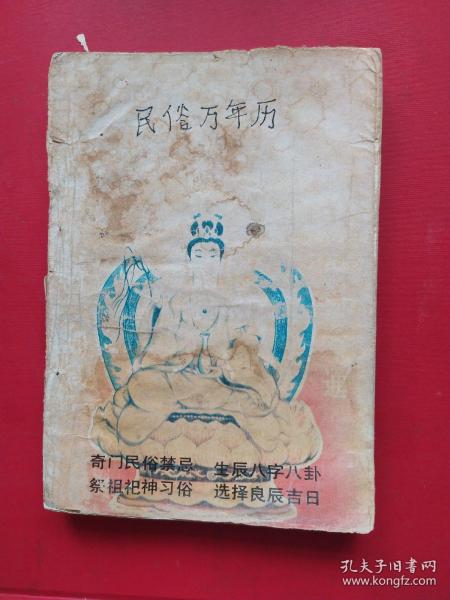 民俗万年历
奇门民俗禁忌 生辰八字八卦
祭祖祀神习俗 选择良辰吉日
孔夫子旧书网
www.kongfz.com